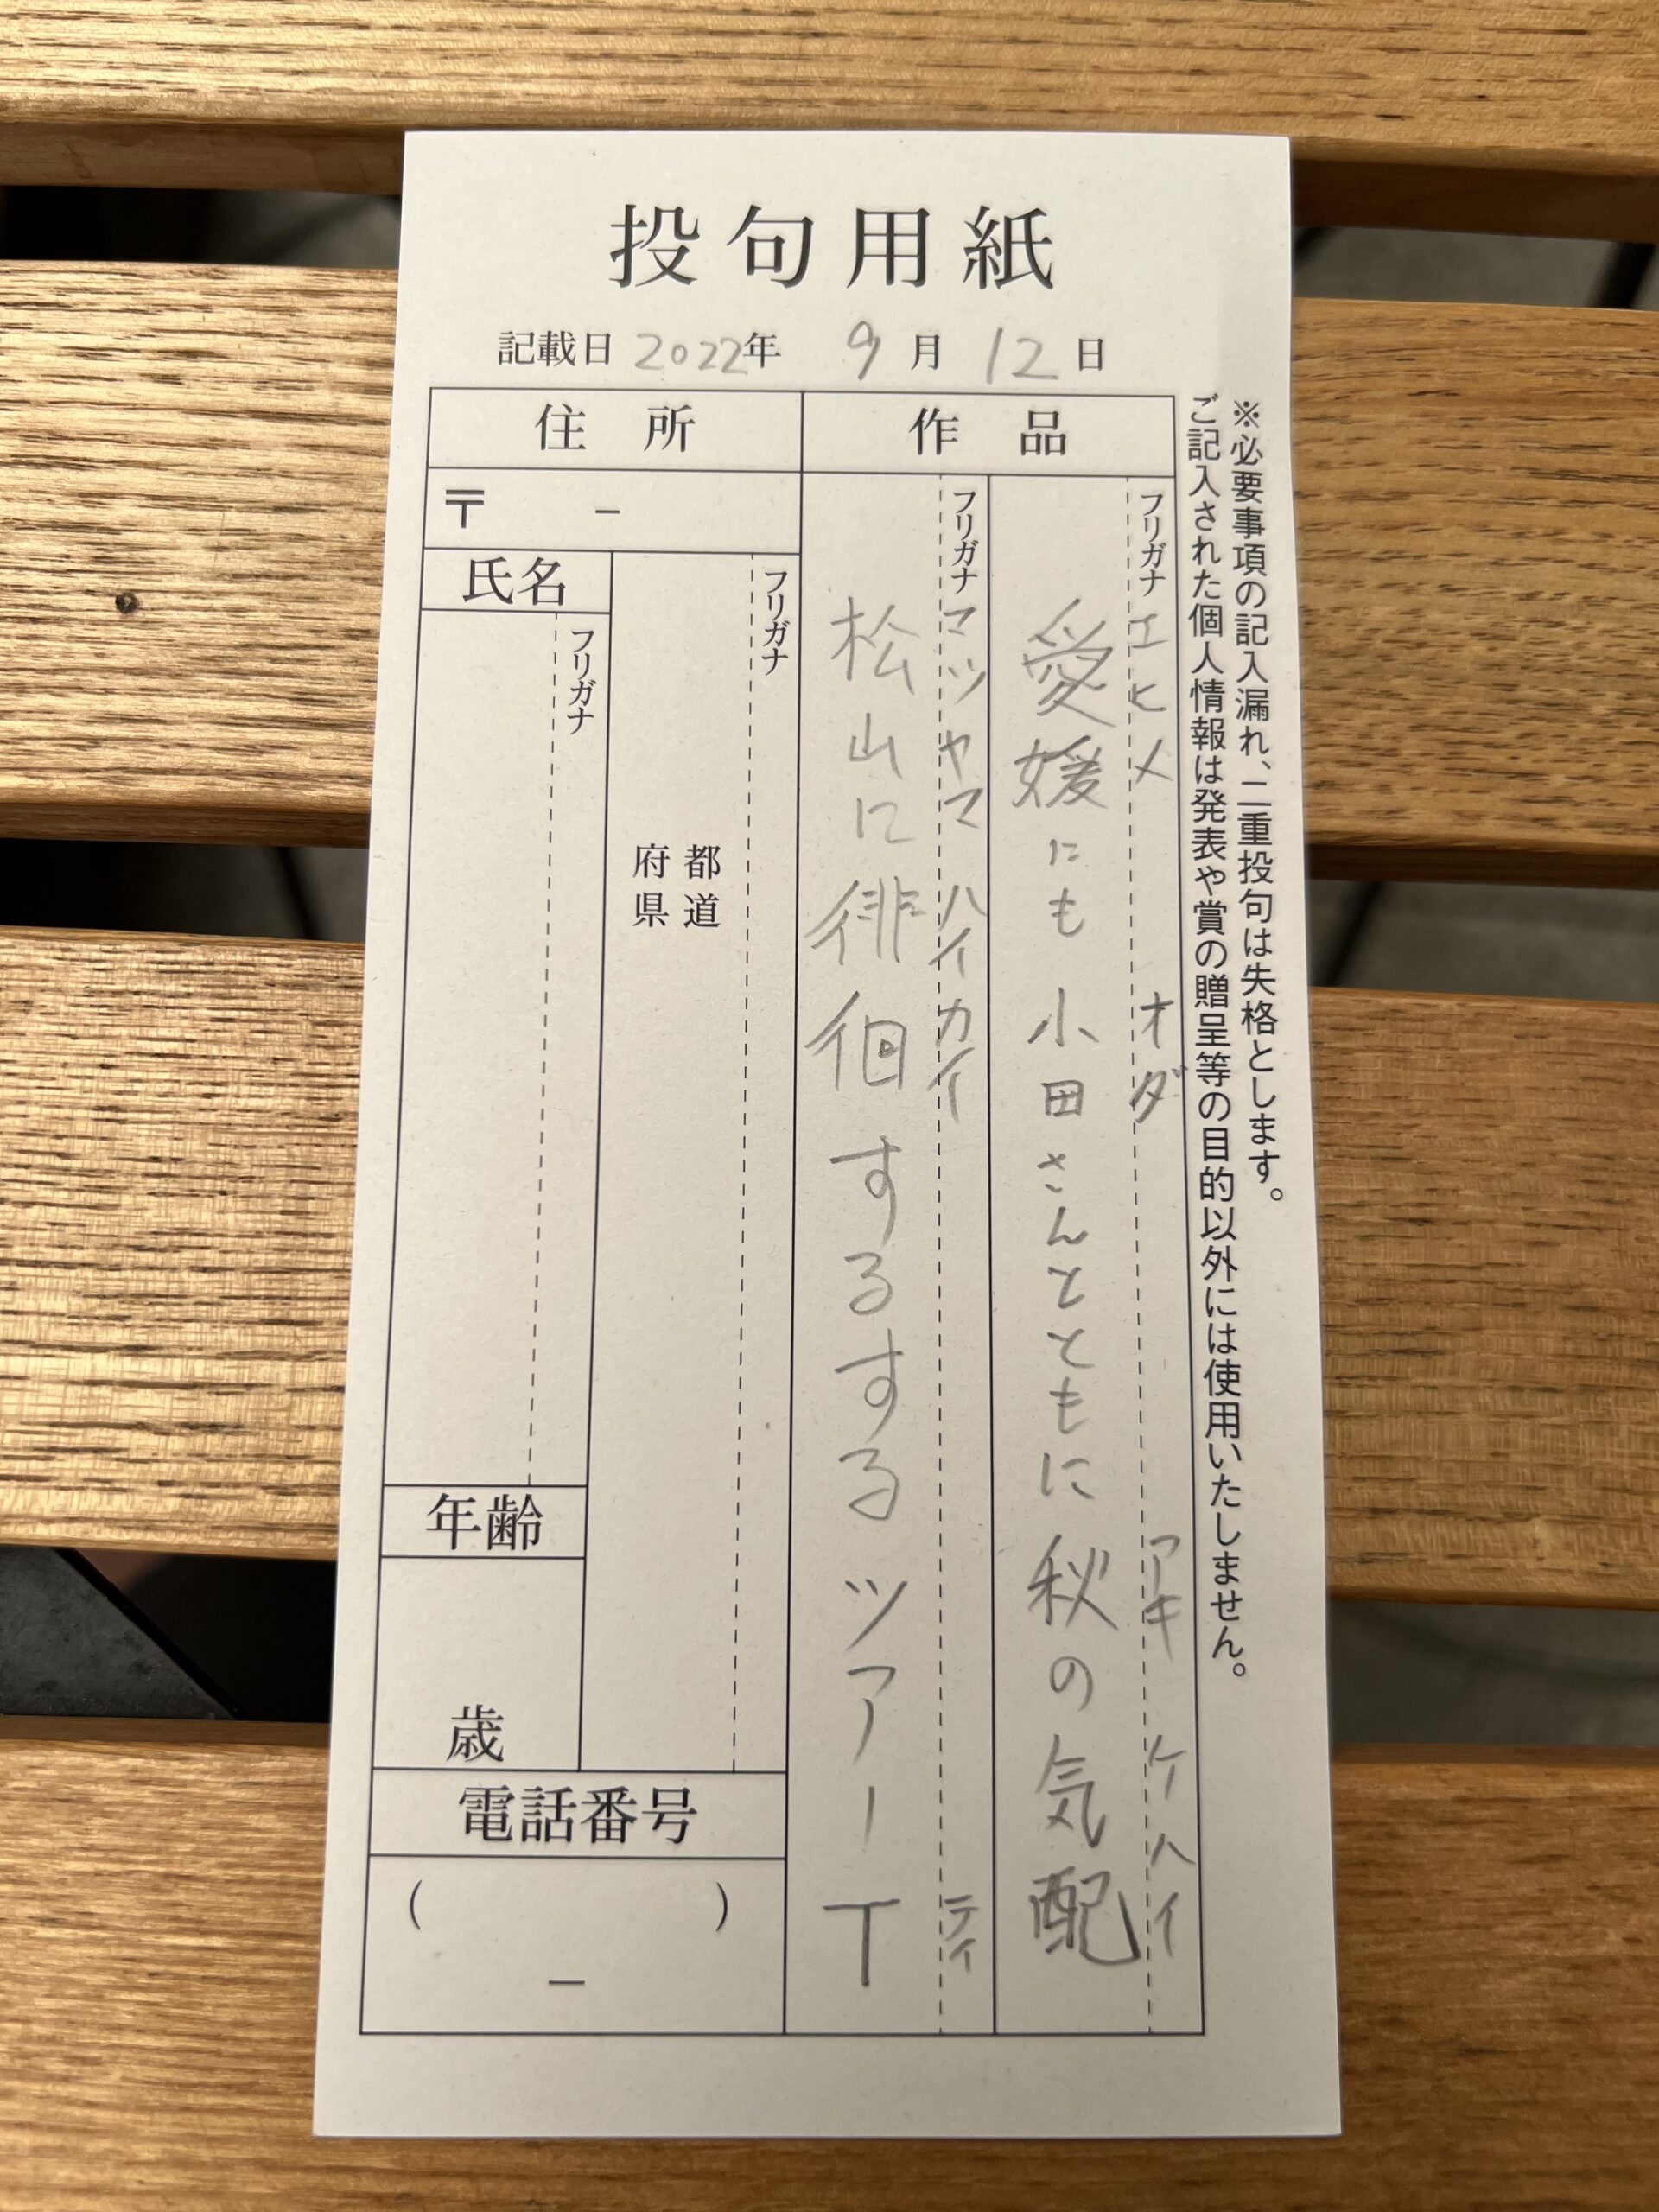 投句用紙
記載日 2022年 9月 12日
※必要事項の記入漏れ、二重投句は失格とします。
ご記入された個人情報は発表や賞の贈呈等の目的以外には使用いたしません。
作品
フリガナ エヒメ オダ アキ ケハイ
愛媛にも小田さんとともに秋の気配
フリガナ マツヤマ ハイカイ ティ
松山に徘徊するするツアーT
住所
〒 -
フリガナ
都道
府県
氏名
フリガナ
年齢
歳
電話番号
( )
-